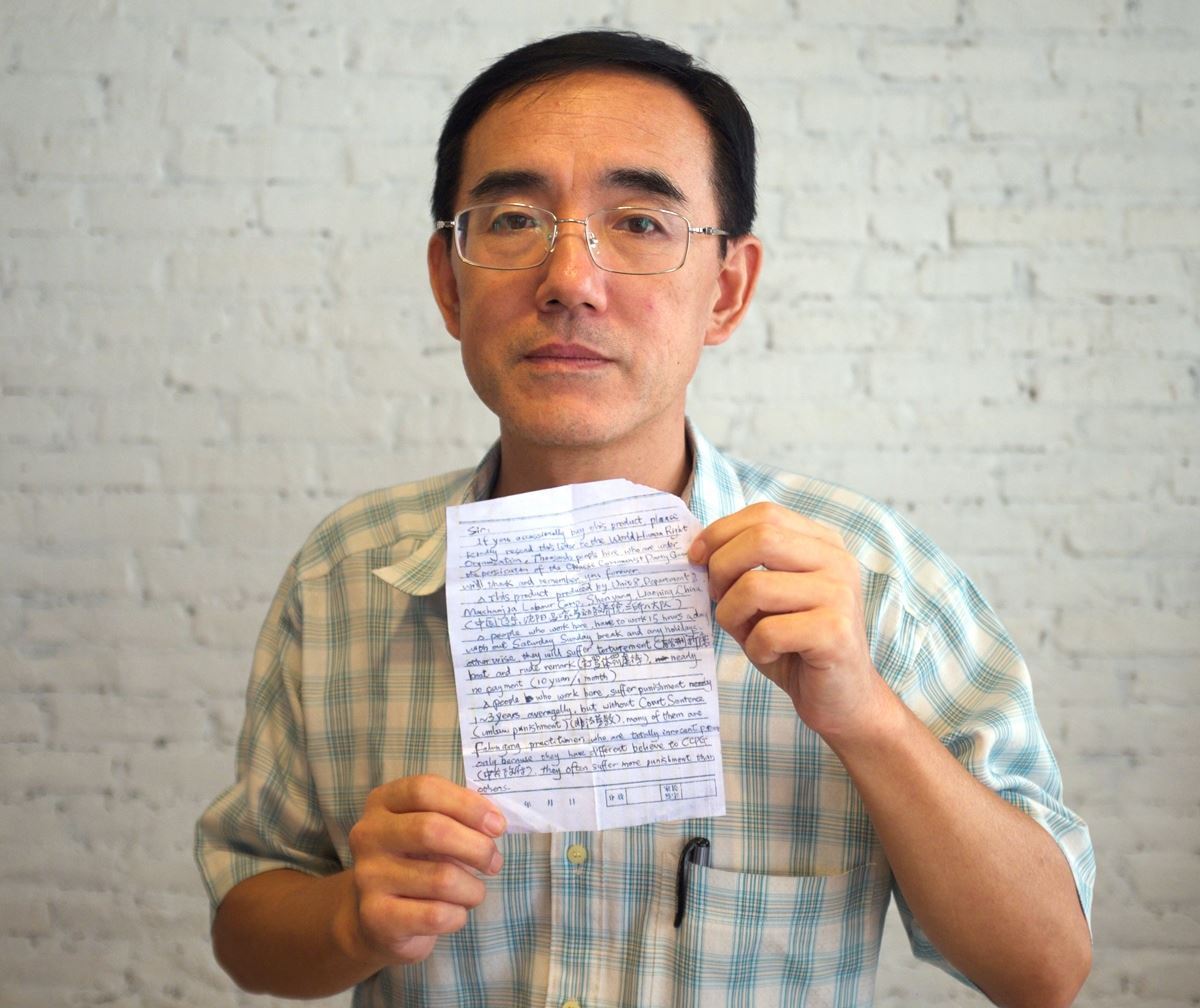 Sir:
If you occassionally buy this product, please
kindly resend this leter to the World Human Right
Organization. Thousands people hire who are under
the persicution of the Chinese Communist Party Gover
will thank and remember you forever.
This product produced by Unit 8, Department 2,
Masanjia Labour Camp, Shenyang, Liaoning, China.
people who work here, have to work 15 hours a day
with out Saturday, Sunday break and any holidays,
other wise, they will suffer torturement
beat and rude remark (打骂体罚虐待), neady
no payment (10 yuan / 1 month)
people who work here, suffer punishment nearly
1~3 years averagelly, but without Court Sentence
(unlaw punishment) (非法劳教). many of them are
Falungong practitioner, who are totally innocent
only because they have different believe to CCPG
they often suffer more punishment than
others.
年 月 日